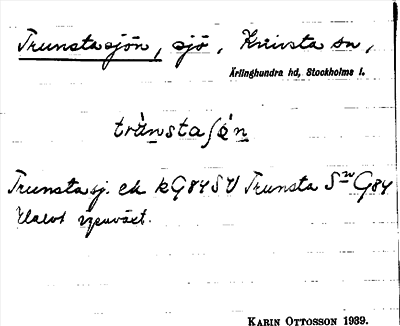 Trunstasjön, sjö, Knivsta sn,
Ärlinghundra hd, Stockholms l.
trùnstaʃǿn
Trunstasj. ek kG84SV Trunsta Sⁿ G84
igenväxt.
KARIN OTTOSSON 1939.